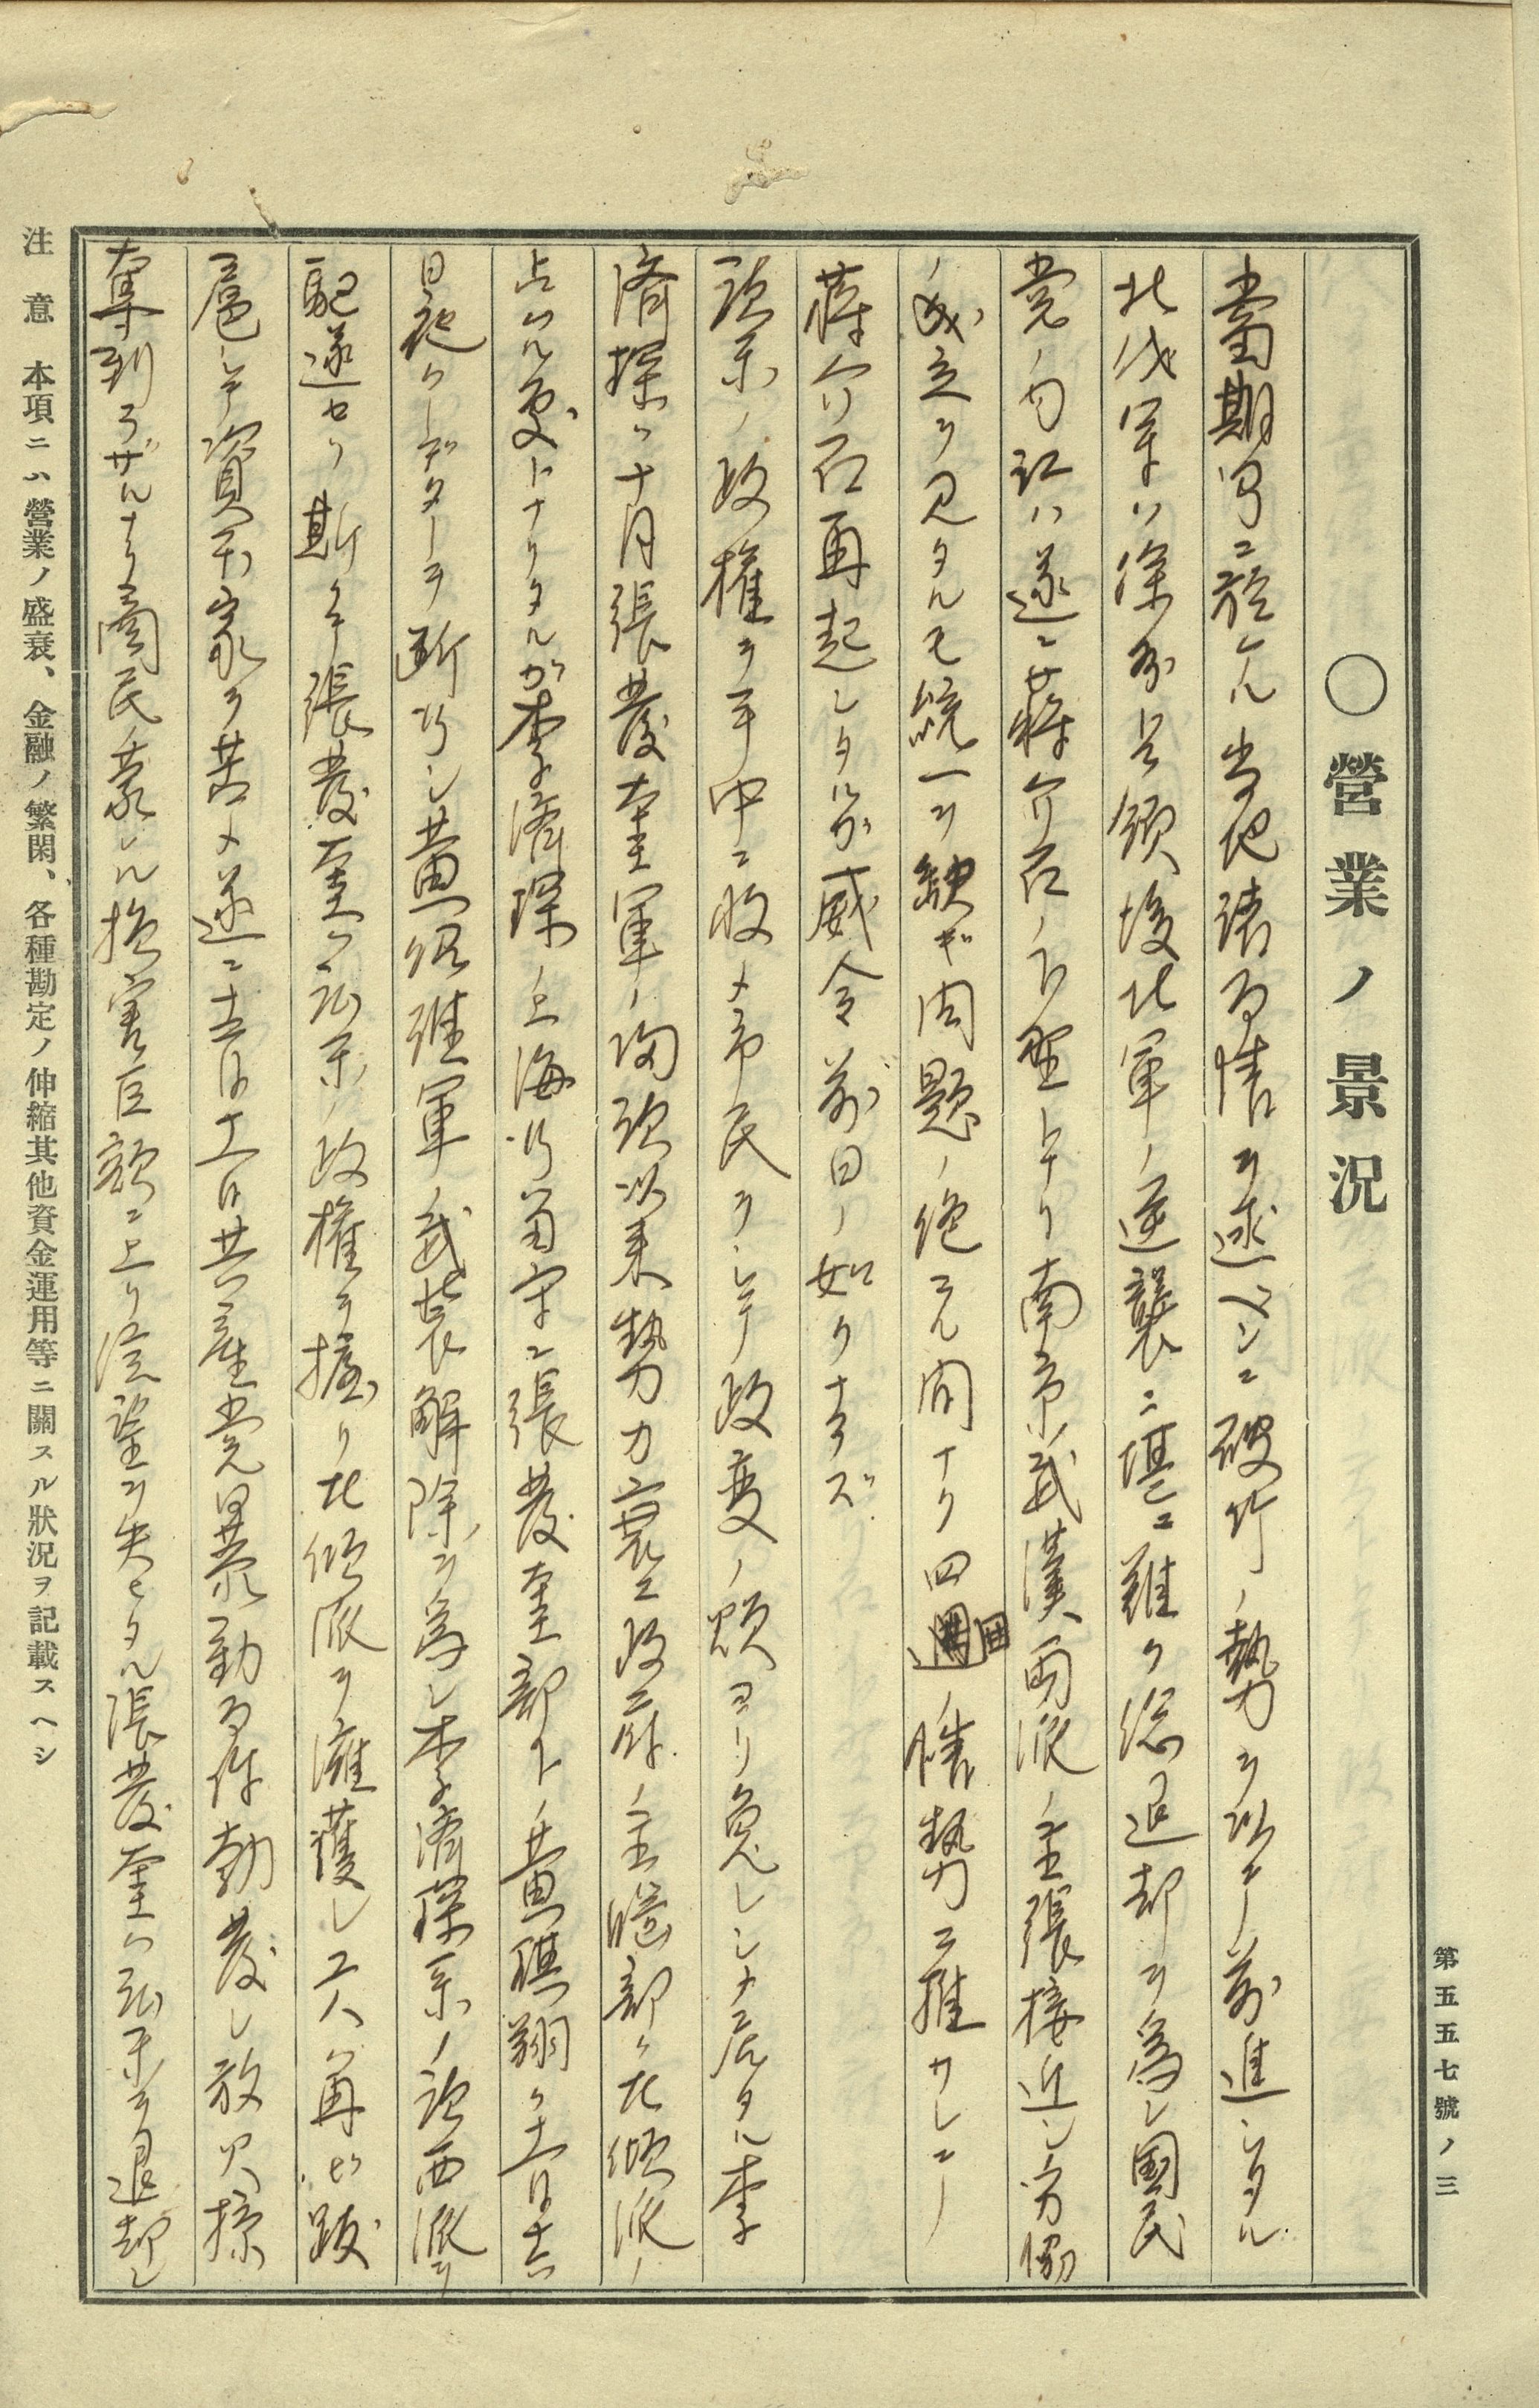 第五五七號ノ三
○營業ノ景況
當期間ニ於ケル当地諸事情ヲ述ベンニ破竹ノ勢力ヲ以テ前進シタル
北伐軍ハ深ク其領後北軍ノ逆襲ニ堪ヱ難ク総退却ヲ為シ國民
党ノ内訌ハ遂ニ蒋介石ノ下野トナリ南京武漢両派ノ主張接近シ妥協
ノ成立ヲ見タルモ統一ヲ缺ギ内題ノ絶ヱル間ナク四囲ノ情勢ニ推サレテ
蒋介石再起シタルガ威令前日ノ如クナラズ
政権ヲ手中ニ收メ市民ヲシテ政変ノ煩ヨリ免レシメ居タル李
済琛ハ十月張發奎軍ノ以来勢力力衰ヱ政府ノ主脳部ハ左傾派ノ
占ムル処トナリタルガ李済琛ノ上海行留守ニ張發奎部下ノ黄琪翔ハ十一月十六
日夜クーデターヲ断行シ黄紹雄軍ノ武装解除ヲ為シ李済琛系ノ西派ヲ
配逐セリ斯クテ張發奎ハ広東ノ政権ヲ握リ左傾派ヲ擁護シ工人ハ再ビ跋
扈シテ資本家ヲ苦メ遂ニ十二月十一日共産党暴動事件勃發シ放火掠
奪到ラザルナク商民ノ蒙レル損害巨額ニ上リ信望ヲ失ヒタル張發奎ハ広東ヲ退却シ
注意 本項ニハ營業ノ盛衰、金融ノ繁閑、各種勘定ノ伸縮其他資金運用等ニ關スル狀況ヲ記載スヘシ